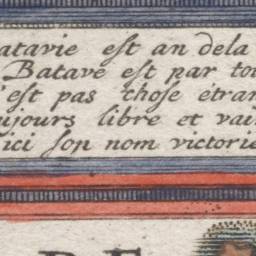 atavie est an dela
Batave est par tou
'est pas chose etran
ujours libre et vai
ici son nom victorie